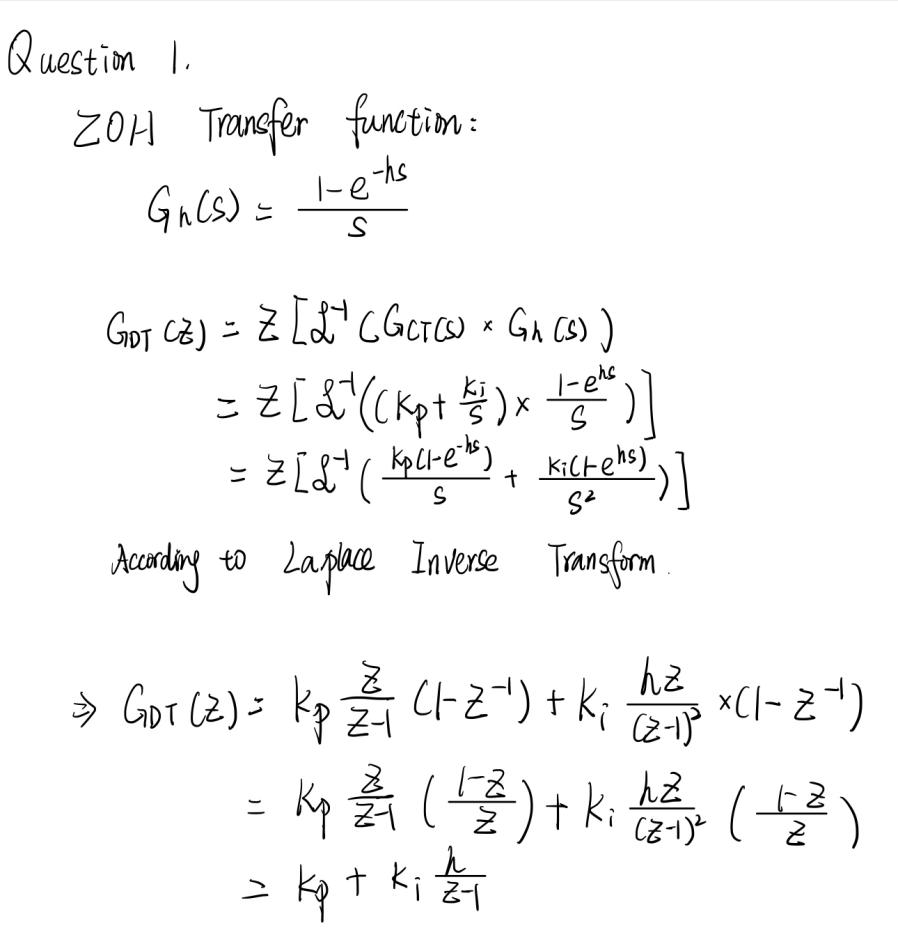 Question 1.
ZOH Transfer function:
Gh(s) = (1-e^-hs)/s
GDT(z) = Z[ℒ^-1(GCT(s) × Gh(s))
= Z[ℒ^-1((Kp + Ki/s) × (1-e^hs)/s)]
= Z[ℒ^-1(Kp(1-e^-hs)/s + Ki(1-e^hs)/s²)]
According to Laplace Inverse Transform.
⇒ GDT(z) = Kp z/(z-1) (1-z^-1) + Ki hz/(z-1)² × (1-z^-1)
= Kp z/(z-1) ((1-z)/z) + Ki hz/(z-1)² ((1-z)/z)
= Kp + Ki h/(z-1)